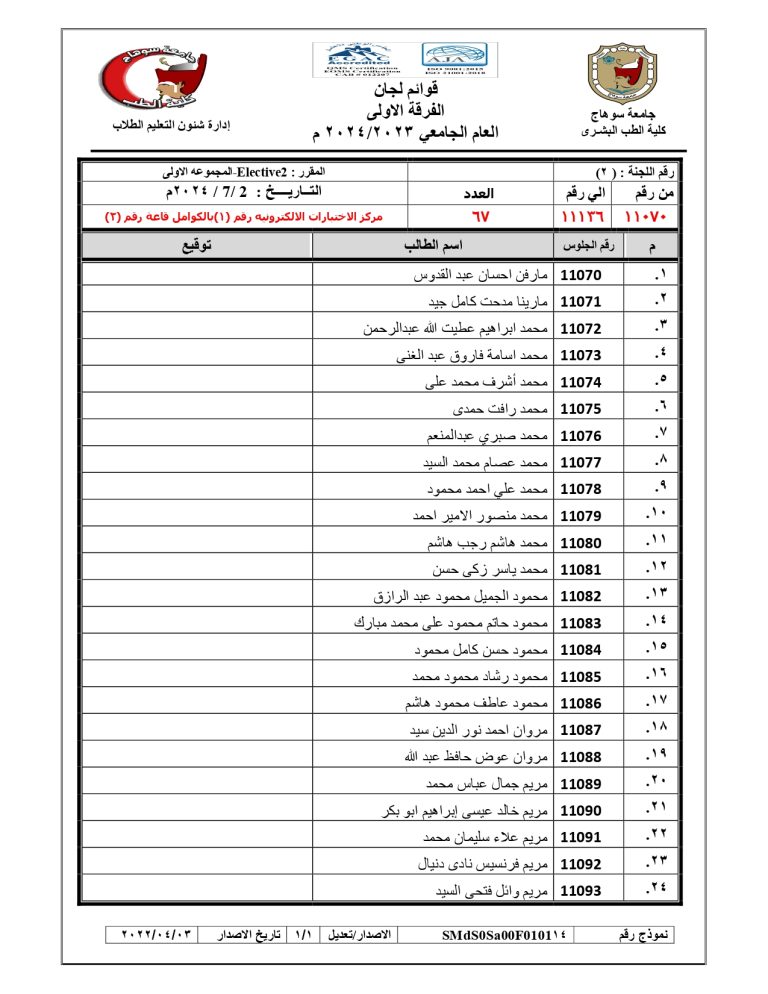 جامعة سوهاج
كلية الطب البشرى
EGAC
Accredited
QMS Certification
EOMS Certification
CAB # 012207
AJA
ISO 9001:2015
ISO 21001:2018
قوائم لجان
الفرقة الاولى
العام الجامعي ٢٠٢٤/٢٠٢٣ م
جامعة سوهاج
كلية الطب
إدارة شئون التعليم الطلاب
رقم اللجنة : ( ٢) المقرر : Elective2-المجموعه الاولى
من رقم الي رقم العدد التــاريــــخ : 2 /7 / ٢٠٢٤م
١١٠٧٠ ١١١٣٦ ٦٧ مركز الاختبارات الالكترونيه رقم (١)بالكوامل قاعة رقم (٢)
م رقم الجلوس اسم الطالب توقيع
١. 11070 مارفن احسان عبد القدوس
٢. 11071 مارينا مدحت كامل جيد
٣. 11072 محمد ابراهيم عطيت الله عبدالرحمن
٤. 11073 محمد اسامة فاروق عبد الغنى
٥. 11074 محمد أشرف محمد على
٦. 11075 محمد رافت حمدى
٧. 11076 محمد صبري عبدالمنعم
٨. 11077 محمد عصام محمد السيد
٩. 11078 محمد علي احمد محمود
١٠. 11079 محمد منصور الامير احمد
١١. 11080 محمد هاشم رجب هاشم
١٢. 11081 محمد ياسر زكى حسن
١٣. 11082 محمود الجميل محمود عبد الرازق
١٤. 11083 محمود حاتم محمود على محمد مبارك
١٥. 11084 محمود حسن كامل محمود
١٦. 11085 محمود رشاد محمود محمد
١٧. 11086 محمود عاطف محمود هاشم
١٨. 11087 مروان احمد نور الدين سيد
١٩. 11088 مروان عوض حافظ عبد الله
٢٠. 11089 مريم جمال عباس محمد
٢١. 11090 مريم خالد عيسى إبراهيم ابو بكر
٢٢. 11091 مريم علاء سليمان محمد
٢٣. 11092 مريم فرنسيس نادى دنيال
٢٤. 11093 مريم وائل فتحى السيد
نموذج رقم SMdS0Sa00F0101١٤ الاصدار/تعديل ١/١ تاريخ الاصدار ٢٠٢٢/٠٤/٠٣